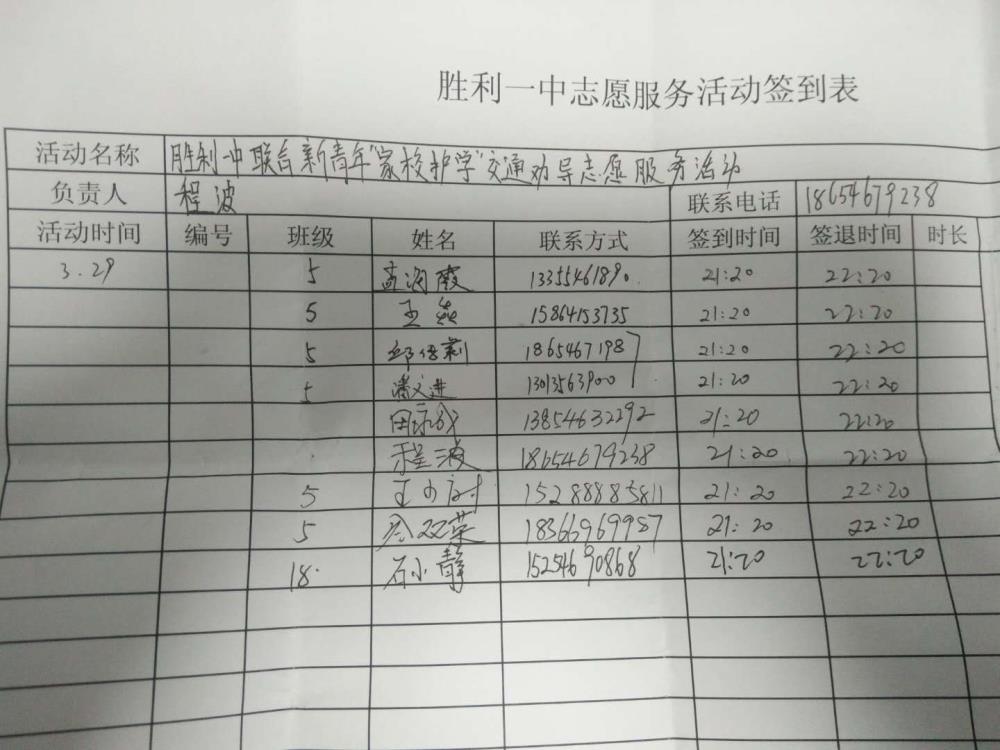 胜利一中志愿服务活动签到表
活动名称 胜利一中联合新青年"家校护学"交通劝导志愿服务活动
负责人 程波 联系电话 18654679238
活动时间 编号 班级 姓名 联系方式 签到时间 签退时间 时长
3.29 5 孟润霞 13355461890 21:20 22:20
5 王燕 15864153735 21:20 22:20
5 邱佳莉 1865467198 21:20 22:20
5 潘文进 13013563900 21:20 22:20
田 13854632292 21:20 22:20
程波 18654679238 21:20 22:20
5 王 15288885811 21:20 22:20
5 双荣 18366969987 21:20 22:20
18. 石小静 15254690868 21:20 22:20